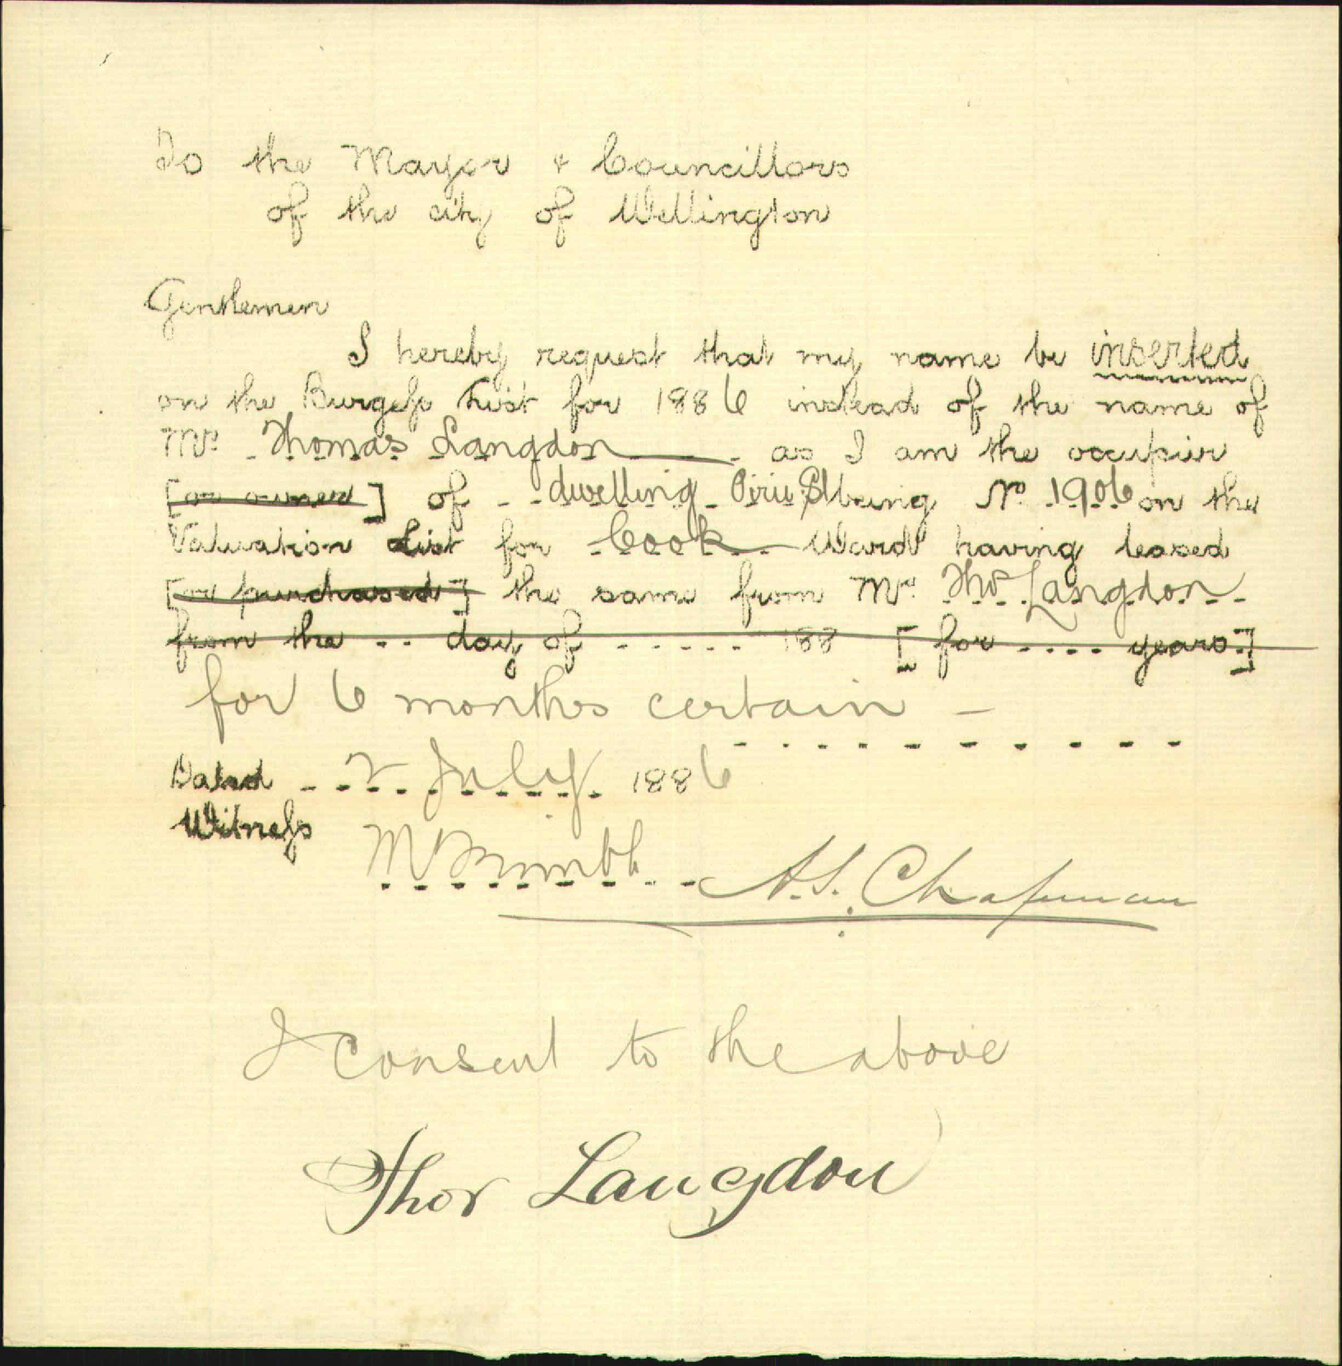 To the Mayor & Councillors
of the city of Wellington
Gentlemen
I hereby request that my name be inserted
on the Burgess List for 1886 instead of the name of
Mr. Thomas Langdon as I am the occupier
[or owner] of dwelling Pirie St being No 1906 on the
Valuation List for Cook Ward having leased
[or purchased] the same from Mr. Thos Langdon
from the .. day of ...... 188 [for .... years.]
for 6 months certain —
Dated 2 July 1886
Witness
A. S. Chapman
I consent to the above
Thos Langdon